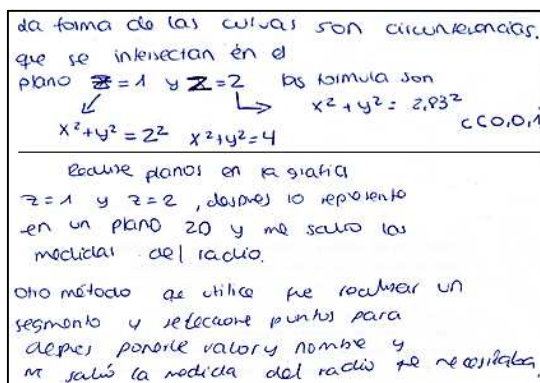 La forma de las curvas son circunferencias.
que se intersectan en el
plano z=1 y z=2 las formula son
x²+y²= 2,83²
x²+y²=2² x²+y²=4 c(0,0,1
Realise planos en la grafica
z=1 y z=2, despues lo represento
en un plano 2D y me salio las
medidas del radio.
Otro método que utilice fue realisar un
segmento y seleccione puntos para
depues ponerle valor y nombre y
m salió la medida del radio que necesitaba.